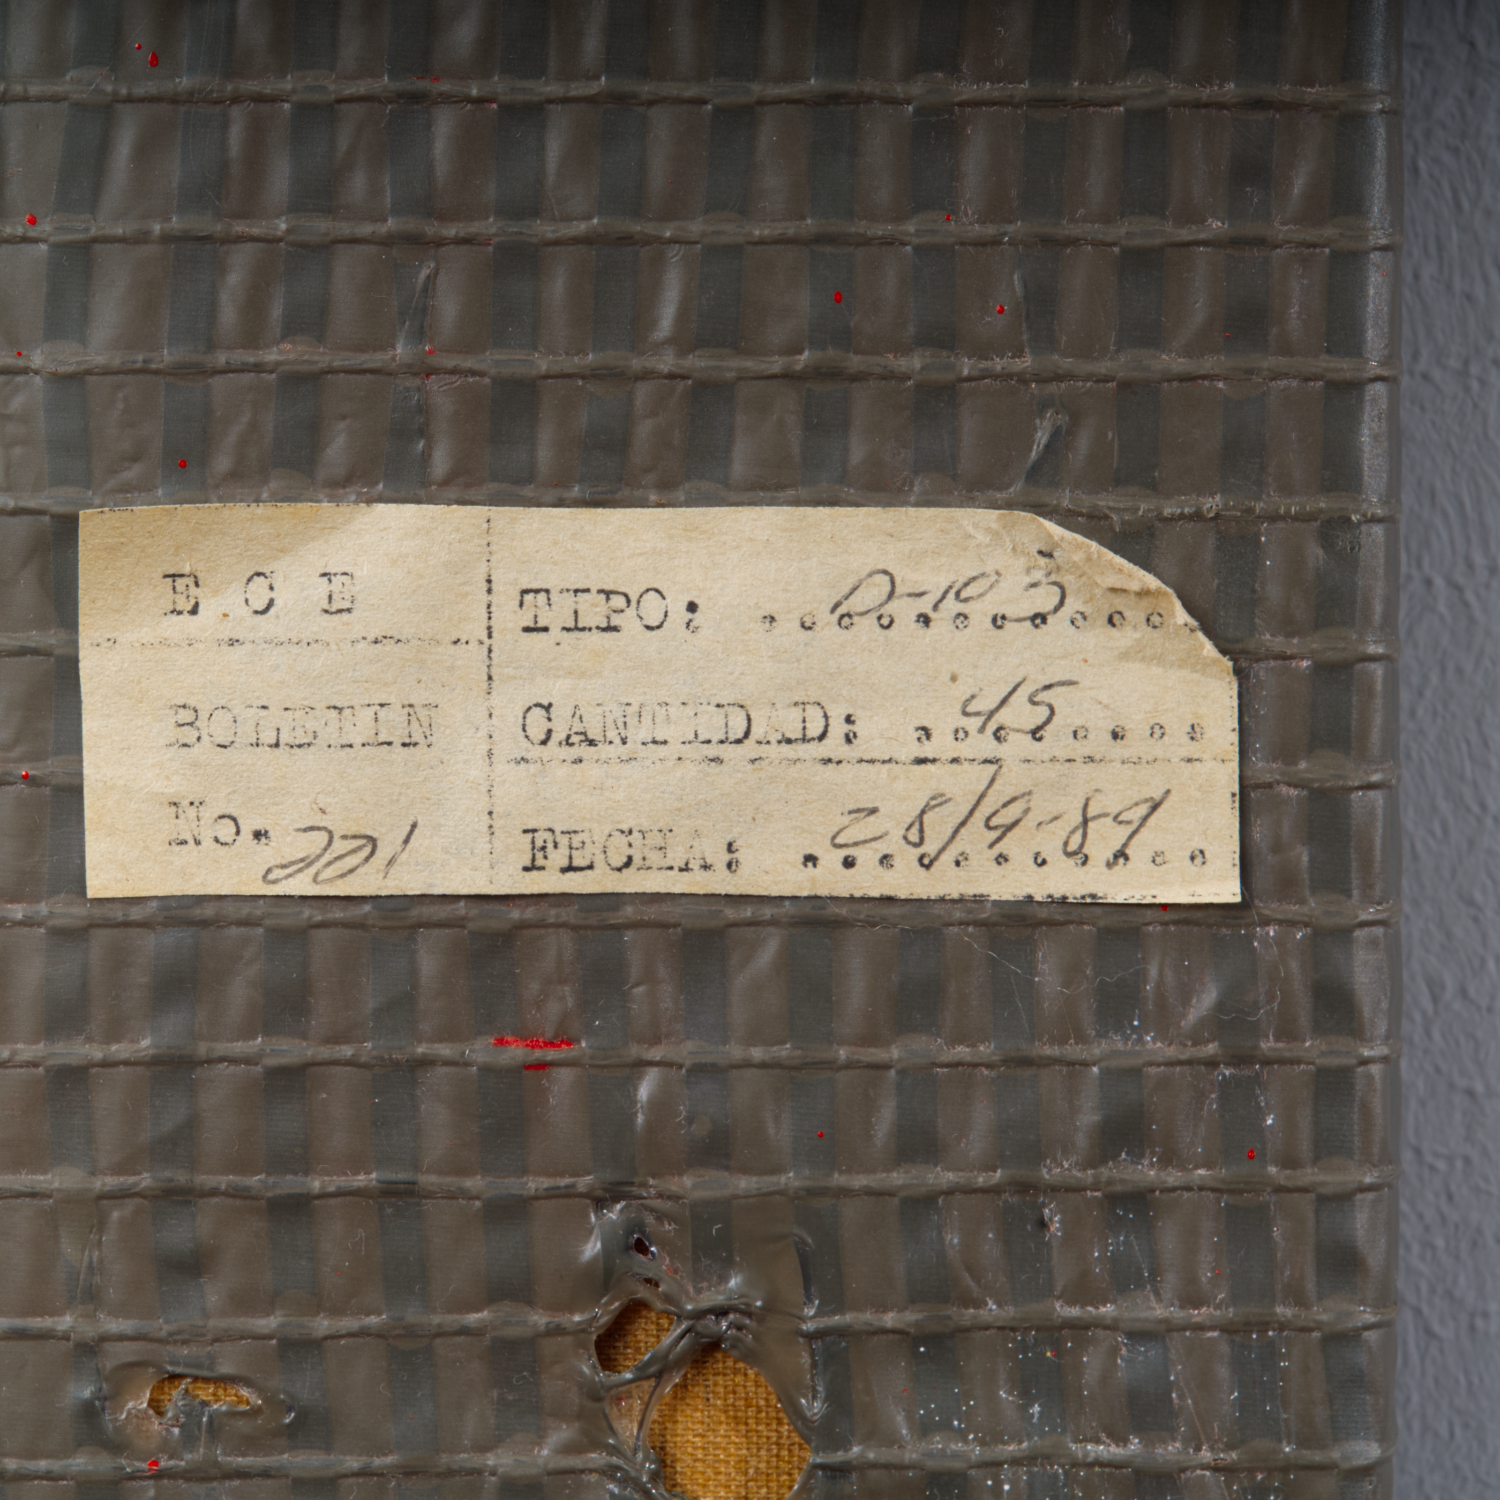 E C E
BOLETIN
No. 221
TIPO: D-103
CANTIDAD: 45
FECHA: 28/9-89